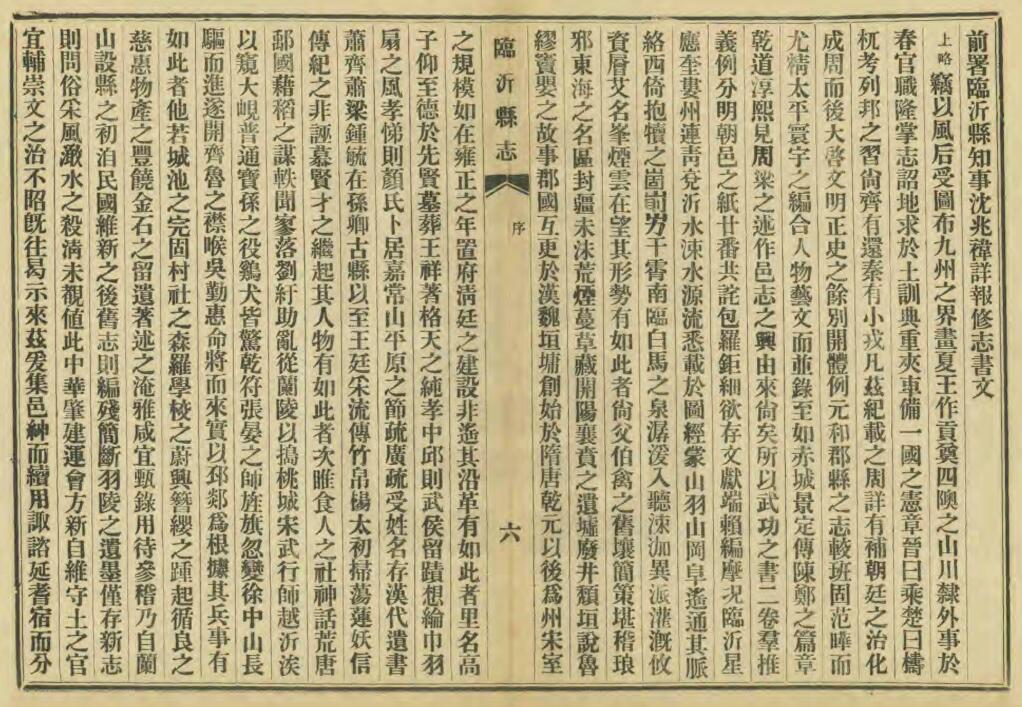 前署臨沂縣知事沈兆禕詳報修志書文
上略竊以風后受圖布九州之界畫夏王作貢奠四隩之山川隸外事於
春官職隆掌志詔地求於土訓典重夾車備一國之憲章晉曰乘楚曰檮
杌考列邦之習尙齊有還秦有小戎凡茲紀載之周詳有補朝廷之治化
成周而後大啓文明正史之餘別開體例元和郡縣之志較班固范曄而
尤精太平寰宇之編合人物藝文而並錄至如赤城景定傳陳鄭之篇章
乾道淳熙見周梁之述作邑志之興由來尙矣所以武功之書二卷羣推
義例分明朝邑之紙廿番共詫包羅鉅細欲存文獻端賴編摩况臨沂星
應奎婁州連靑兗沂水涑水源流悉載於圖經蒙山羽山岡阜遙通其脈
絡西倚抱犢之崮崱屴干霄南臨白馬之泉潺湲入聽涑泇異派灌漑攸
資層艾名峯煙雲在望其形勢有如此者尙父伯禽之舊壤簡策堪稽琅
邪東海之名區封疆未沬荒煙蔓草藏開陽襄賁之遺墟廢井頹垣說魯
繆竇嬰之故事郡國互更於漢魏垣墉創始於隋唐乾元以後爲州宋室
臨沂縣志
序
六
之規模如在雍正之年置府淸廷之建設非遙其沿革有如此者里名高
子仰至德於先賢墓葬王祥著格天之純孝中邱則武侯留蹟想綸巾羽
扇之風孝悌則顏氏卜居嘉常山平原之節疏廣疏受姓名存漢代遺書
蕭齊蕭梁鍾毓在孫卿古縣以至王廷采流傳竹帛楊太初掃蕩蓮妖信
傳紀之非誣慕賢才之繼起其人物有如此者次睢食人之社神話荒唐
鄅國藉稻之謀軼聞寥落劉紆助亂從蘭陵以搗桃城宋武行師越沂涘
以窺大峴普通寶孫之役鷄犬皆驚乾符張晏之師旌旗忽變徐中山長
驅而進遂開齊魯之襟喉吳勤惠命將而來實以邳郯爲根據其兵事有
如此者他若城池之完固村社之森羅學校之蔚興簪纓之踵起循良之
慈惠物產之豐饒金石之留遺著述之淹雅咸宜甄錄用待參稽乃自蘭
山設縣之初洎民國維新之後舊志則編殘簡斷羽陵之遺墨僅存新志
則問俗采風瀲水之殺淸未覩値此中華肇建運會方新自維守土之官
宜輔崇文之治不昭旣往曷示來茲爰集邑紳而續用諏諮延耆宿而分